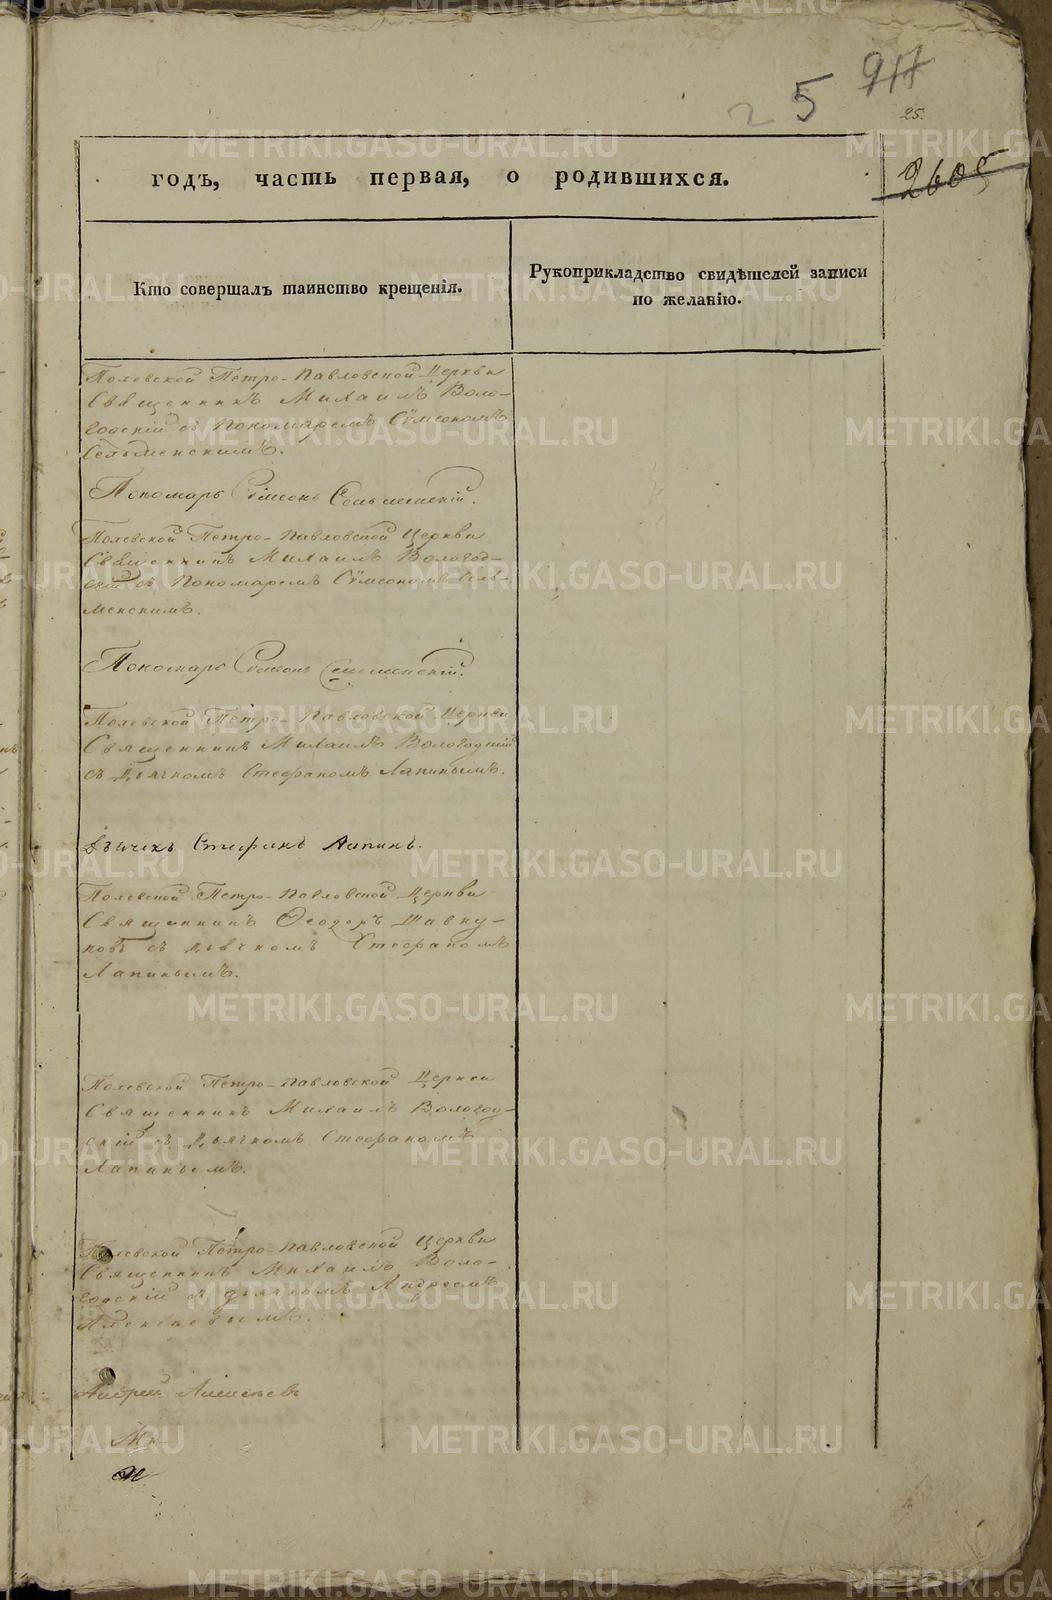 25 917
25.
2605
годъ, часть первая, о родившихся.
Кто совершалъ таинство крещенія.
Рукоприкладство свидѣтелей записи
по желанію.
Полевской Петро-Павловской Церкви
Священникъ Михаилъ Воло-
годскій съ Пономаремъ Сѵмеономъ
Сельменскимъ.
Пономарь Сѵмеонъ Сельменскій.
Полевской Петро-Павловской Церкви
Священникъ Михаилъ Вологод-
скій съ Пономаремъ Сѵмеономъ Сель-
менскимъ.
Пономарь Сѵмеонъ Сельменскій.
Полевской Петро-Павловской Церкви
Священникъ Михаилъ Вологодскій
съ Дьячкомъ Стефаномъ Лапинымъ.
Дьячекъ Стефанъ Лапинъ.
Полевской Петро-Павловской Церкви
Священникъ Ѳеодоръ Шавку-
новъ съ Дьячкомъ Стефаномъ
Лапинымъ.
Полевской Петро-Павловской Церкви
Священникъ Михаилъ Вологод-
скій съ Дьячкомъ Стефаномъ
Лапинымъ.
Полевской Петро-Павловской Церкви
Священникъ Михаилъ Воло-
годскій съ дьячкомъ Андреемъ
Алексѣевымъ.
Андрей Алексѣевъ
METRIKI.GASO-URAL.RU